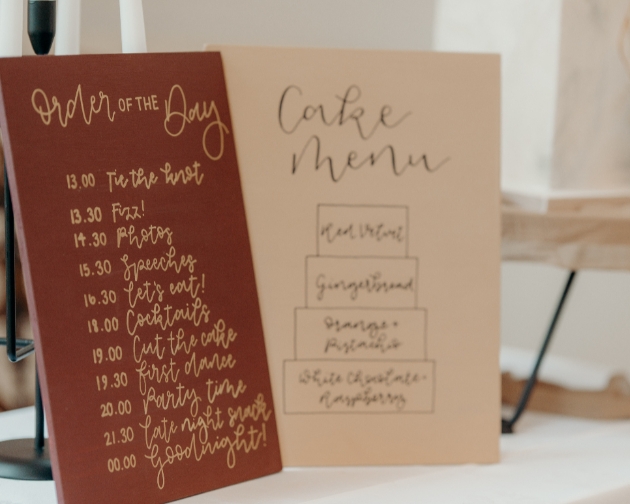 Order OF THE Day
13.00 Tie the knot
13.30 Fizz!
14.30 Photos
15.30 Speeches
16.30 Let's eat!
18.00 Cocktails
19.00 Cut the cake
19.30 first dance
20.00 Party time
21.30 late night snack
00.00 Goodnight!
Cake
menu
Red Velvet
Gingerbread
Orange +
Pistachio
White Chocolate +
Raspberry